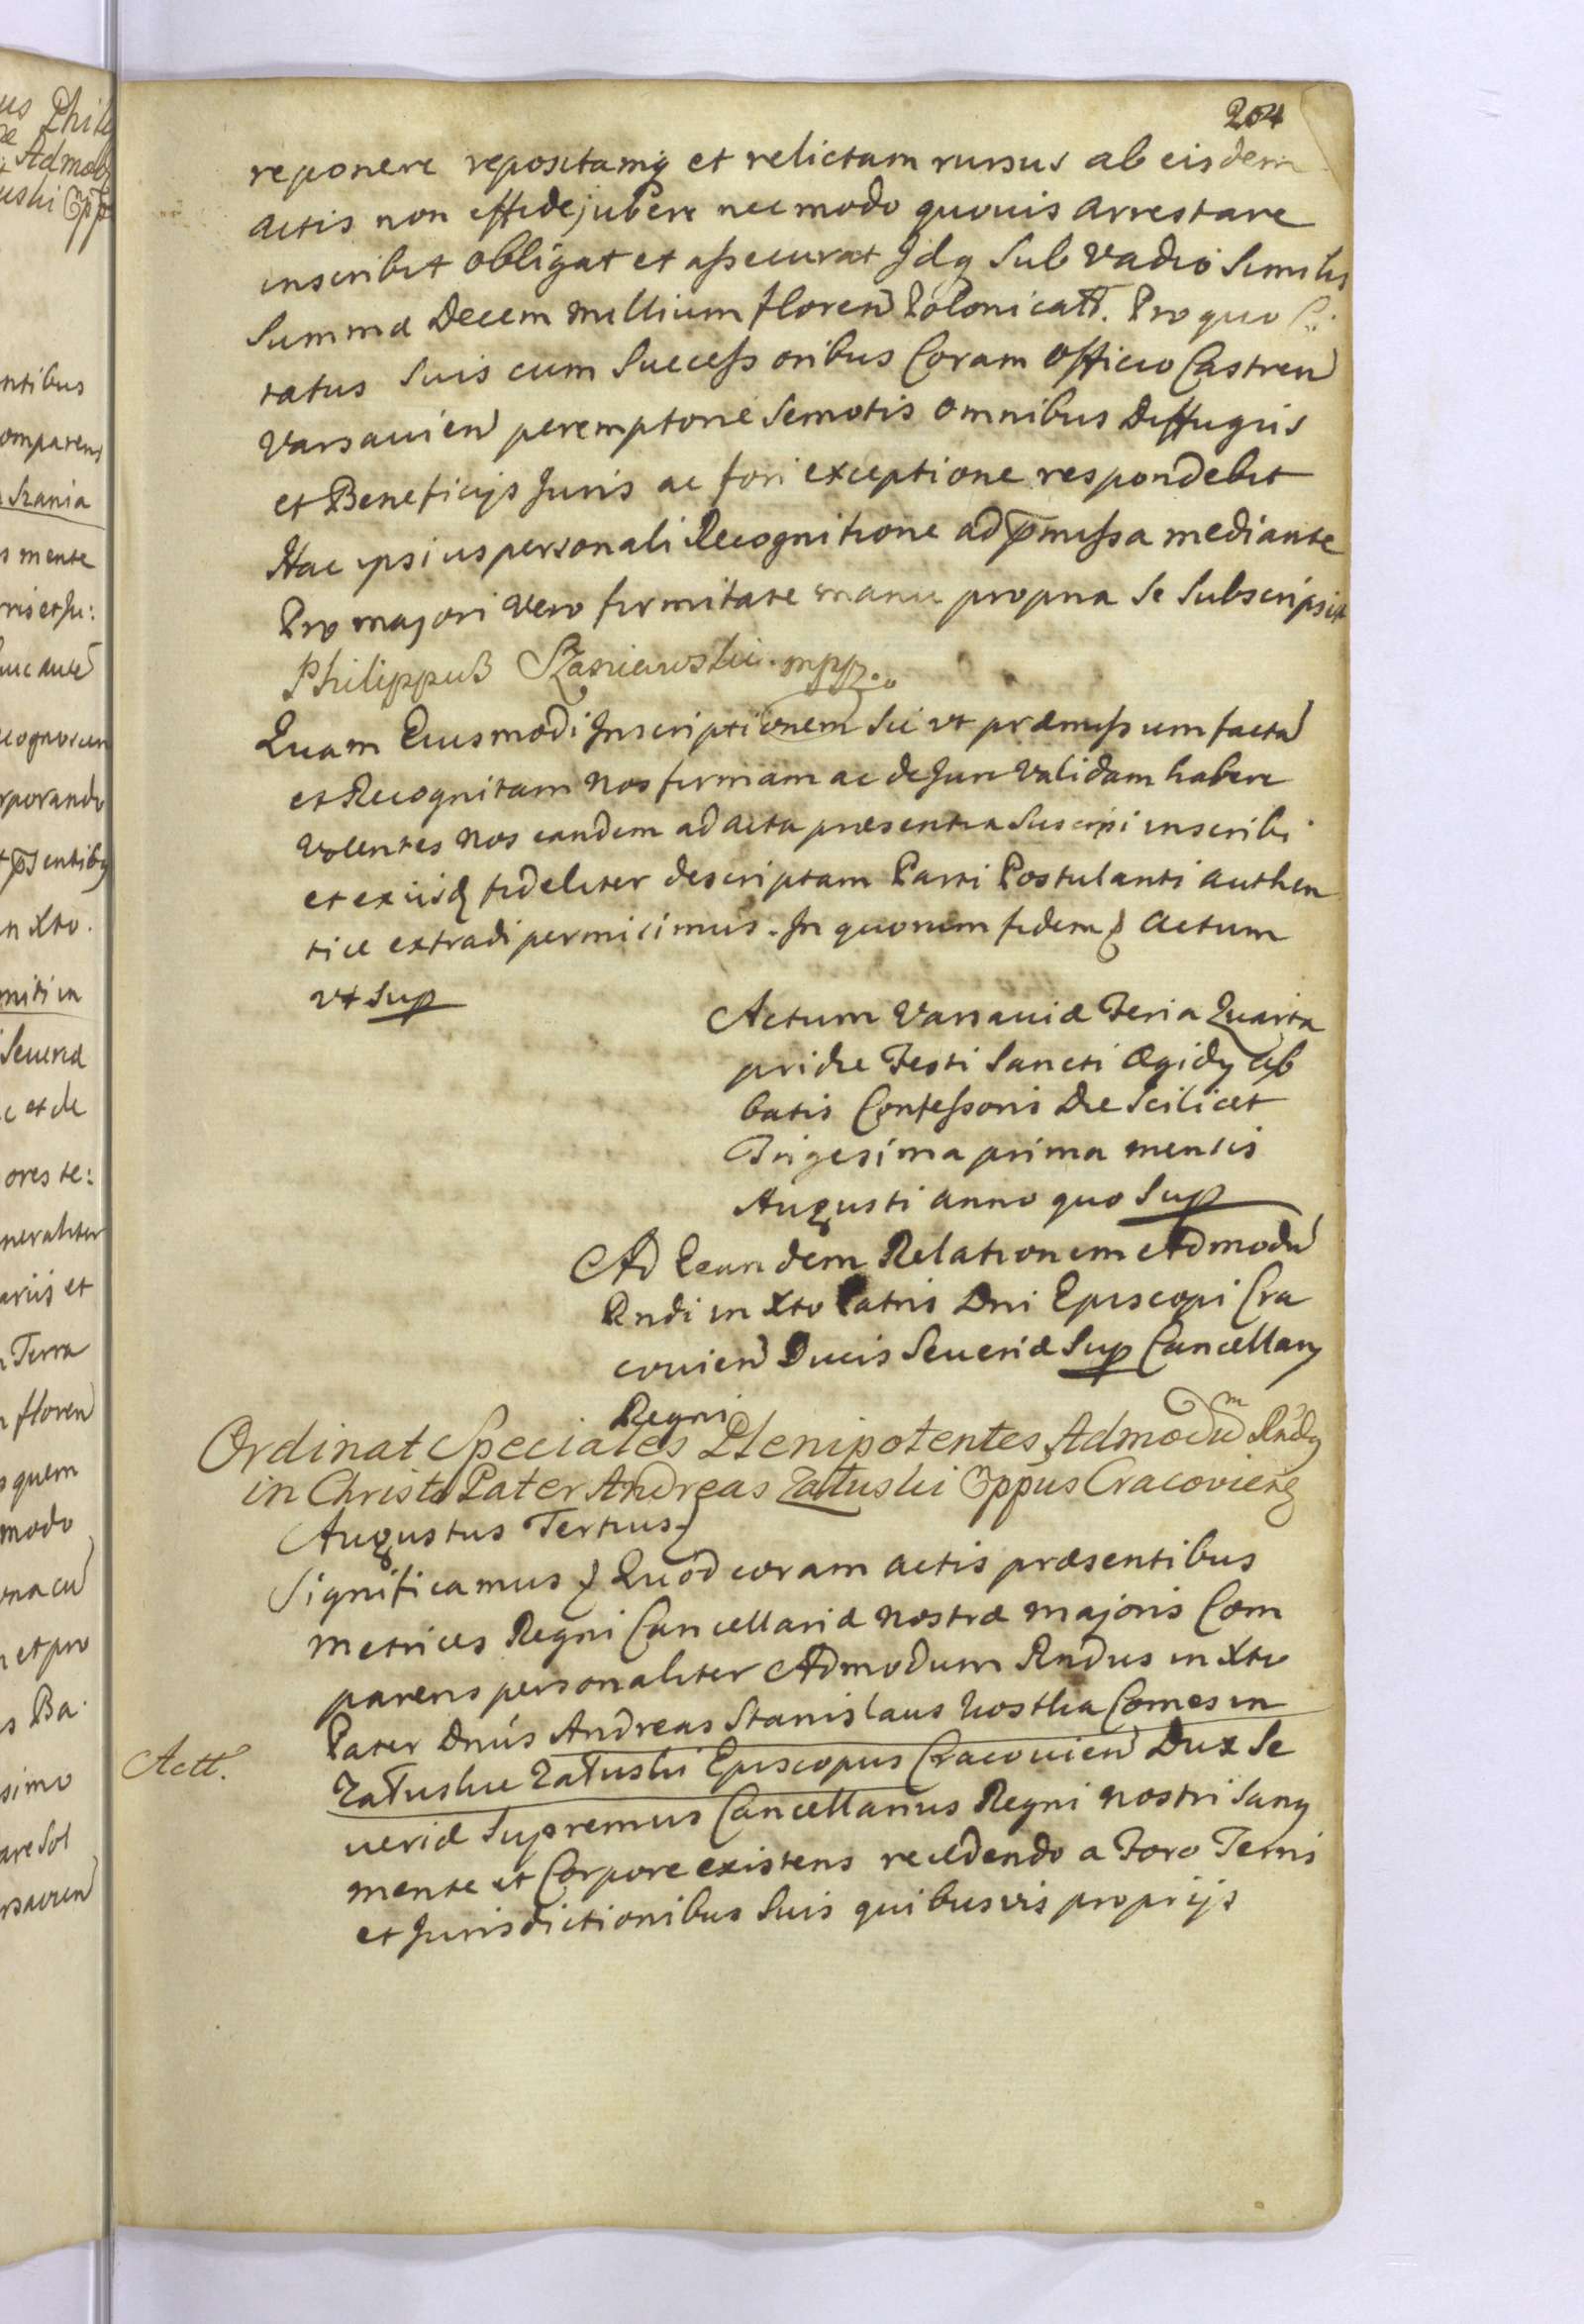 204
reponere repositamq et relictam rursus ab eisdem
actis non effidejubere nec modo quovis arrestare
inscribit obligat et assecurat Idq sub vadio similis
Summæ Decem millium floren Polonicatt. Pro quo Ci:
tatus suis cum Successoribus Coram officio Castren
Varsavien peremptorie semotis omnibus Diffugiis
et Beneficijs Juris ac fori exceptione respondebit
Hac ipsius personali Recognitione ad pmissa mediante
Pro majori vero firmitate manu propria se subscripsit
Philippus Szaniawski mpp.
Quam Eiusmodi Inscriptionem sic ut præmissum factã
et Recognitam nos firmam ac de Jure validam habere
volentes nos eandem ad acta præsentia suscipi inscribi
et ex iisd fideliter descriptam Parti Postulanti authen
tice extradi permisimus. In quorum fidem Actum
ut sup
Actum Varsaviæ Feria Quarta
pridie Festi Sancti Ægidij Ab
batis Confessoris Die scilicet
Trigesima prima mensis
Augusti anno quo sup
Ad Eandem Relationem Admodũ
Rndi in Xto Patris Dni Episcopi Cra
covien Ducis Severiæ Sup Cancellarij
Regni
Ordinat Speciales Plenipotentes Admodũm Rndq
in Christo Pater Andreas Załuski Eppus Cracovien
Augustus Tertius
Significamus Quod coram actis præsentibus
metrices Regni Cancellariæ nostræ majoris Com
parens personaliter Admodum Rndus in Xto
Pater Dnus Andreas Stanislaus Kostka Comes in
Actt.
Załuskie Załuski Episcopus Cracovien Dux Se
veriæ Supremus Cancellarius Regni nostri Sanq
mente et Corpore existens recedendo a Foro Terris
et Jurisdictionibus suis quibusvis proprijs